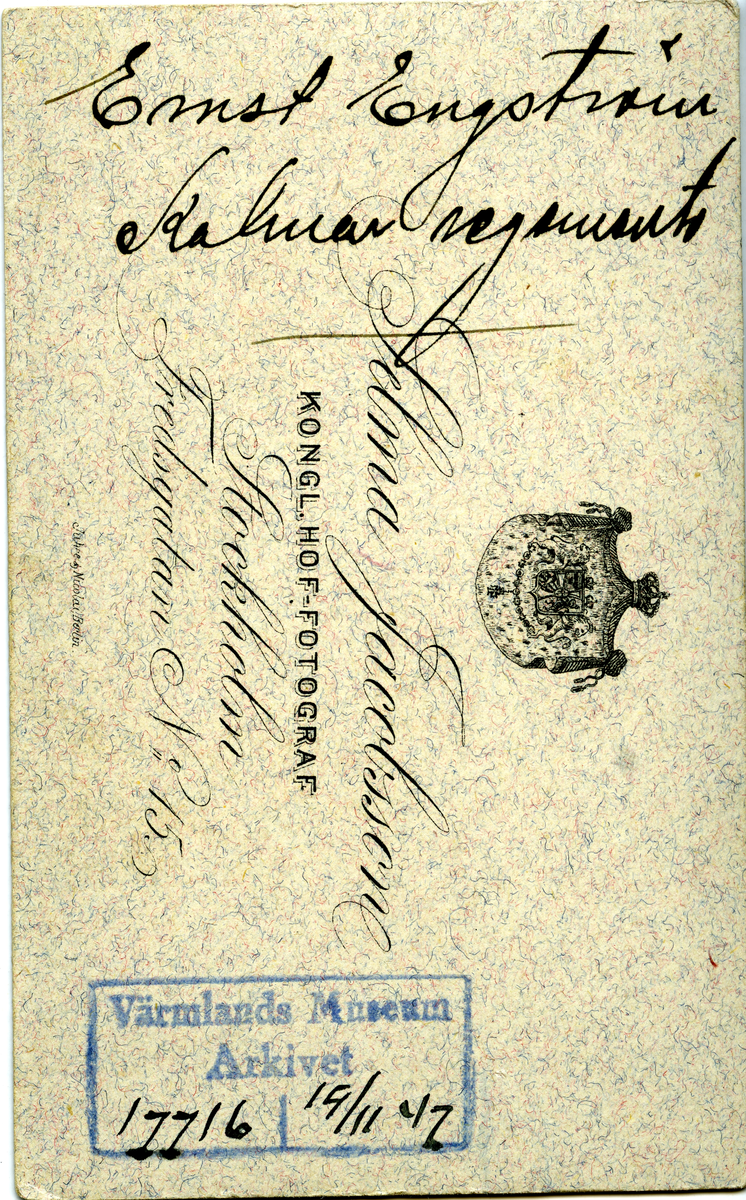 Ernst Engström
Kalmar regemente
Selma Jacobsson
KONGL. HOF-FOTOGRAF
Stockholm
Fredsgatan No 15.
Värmlands Museum
Arkivet
17716 19/11 47